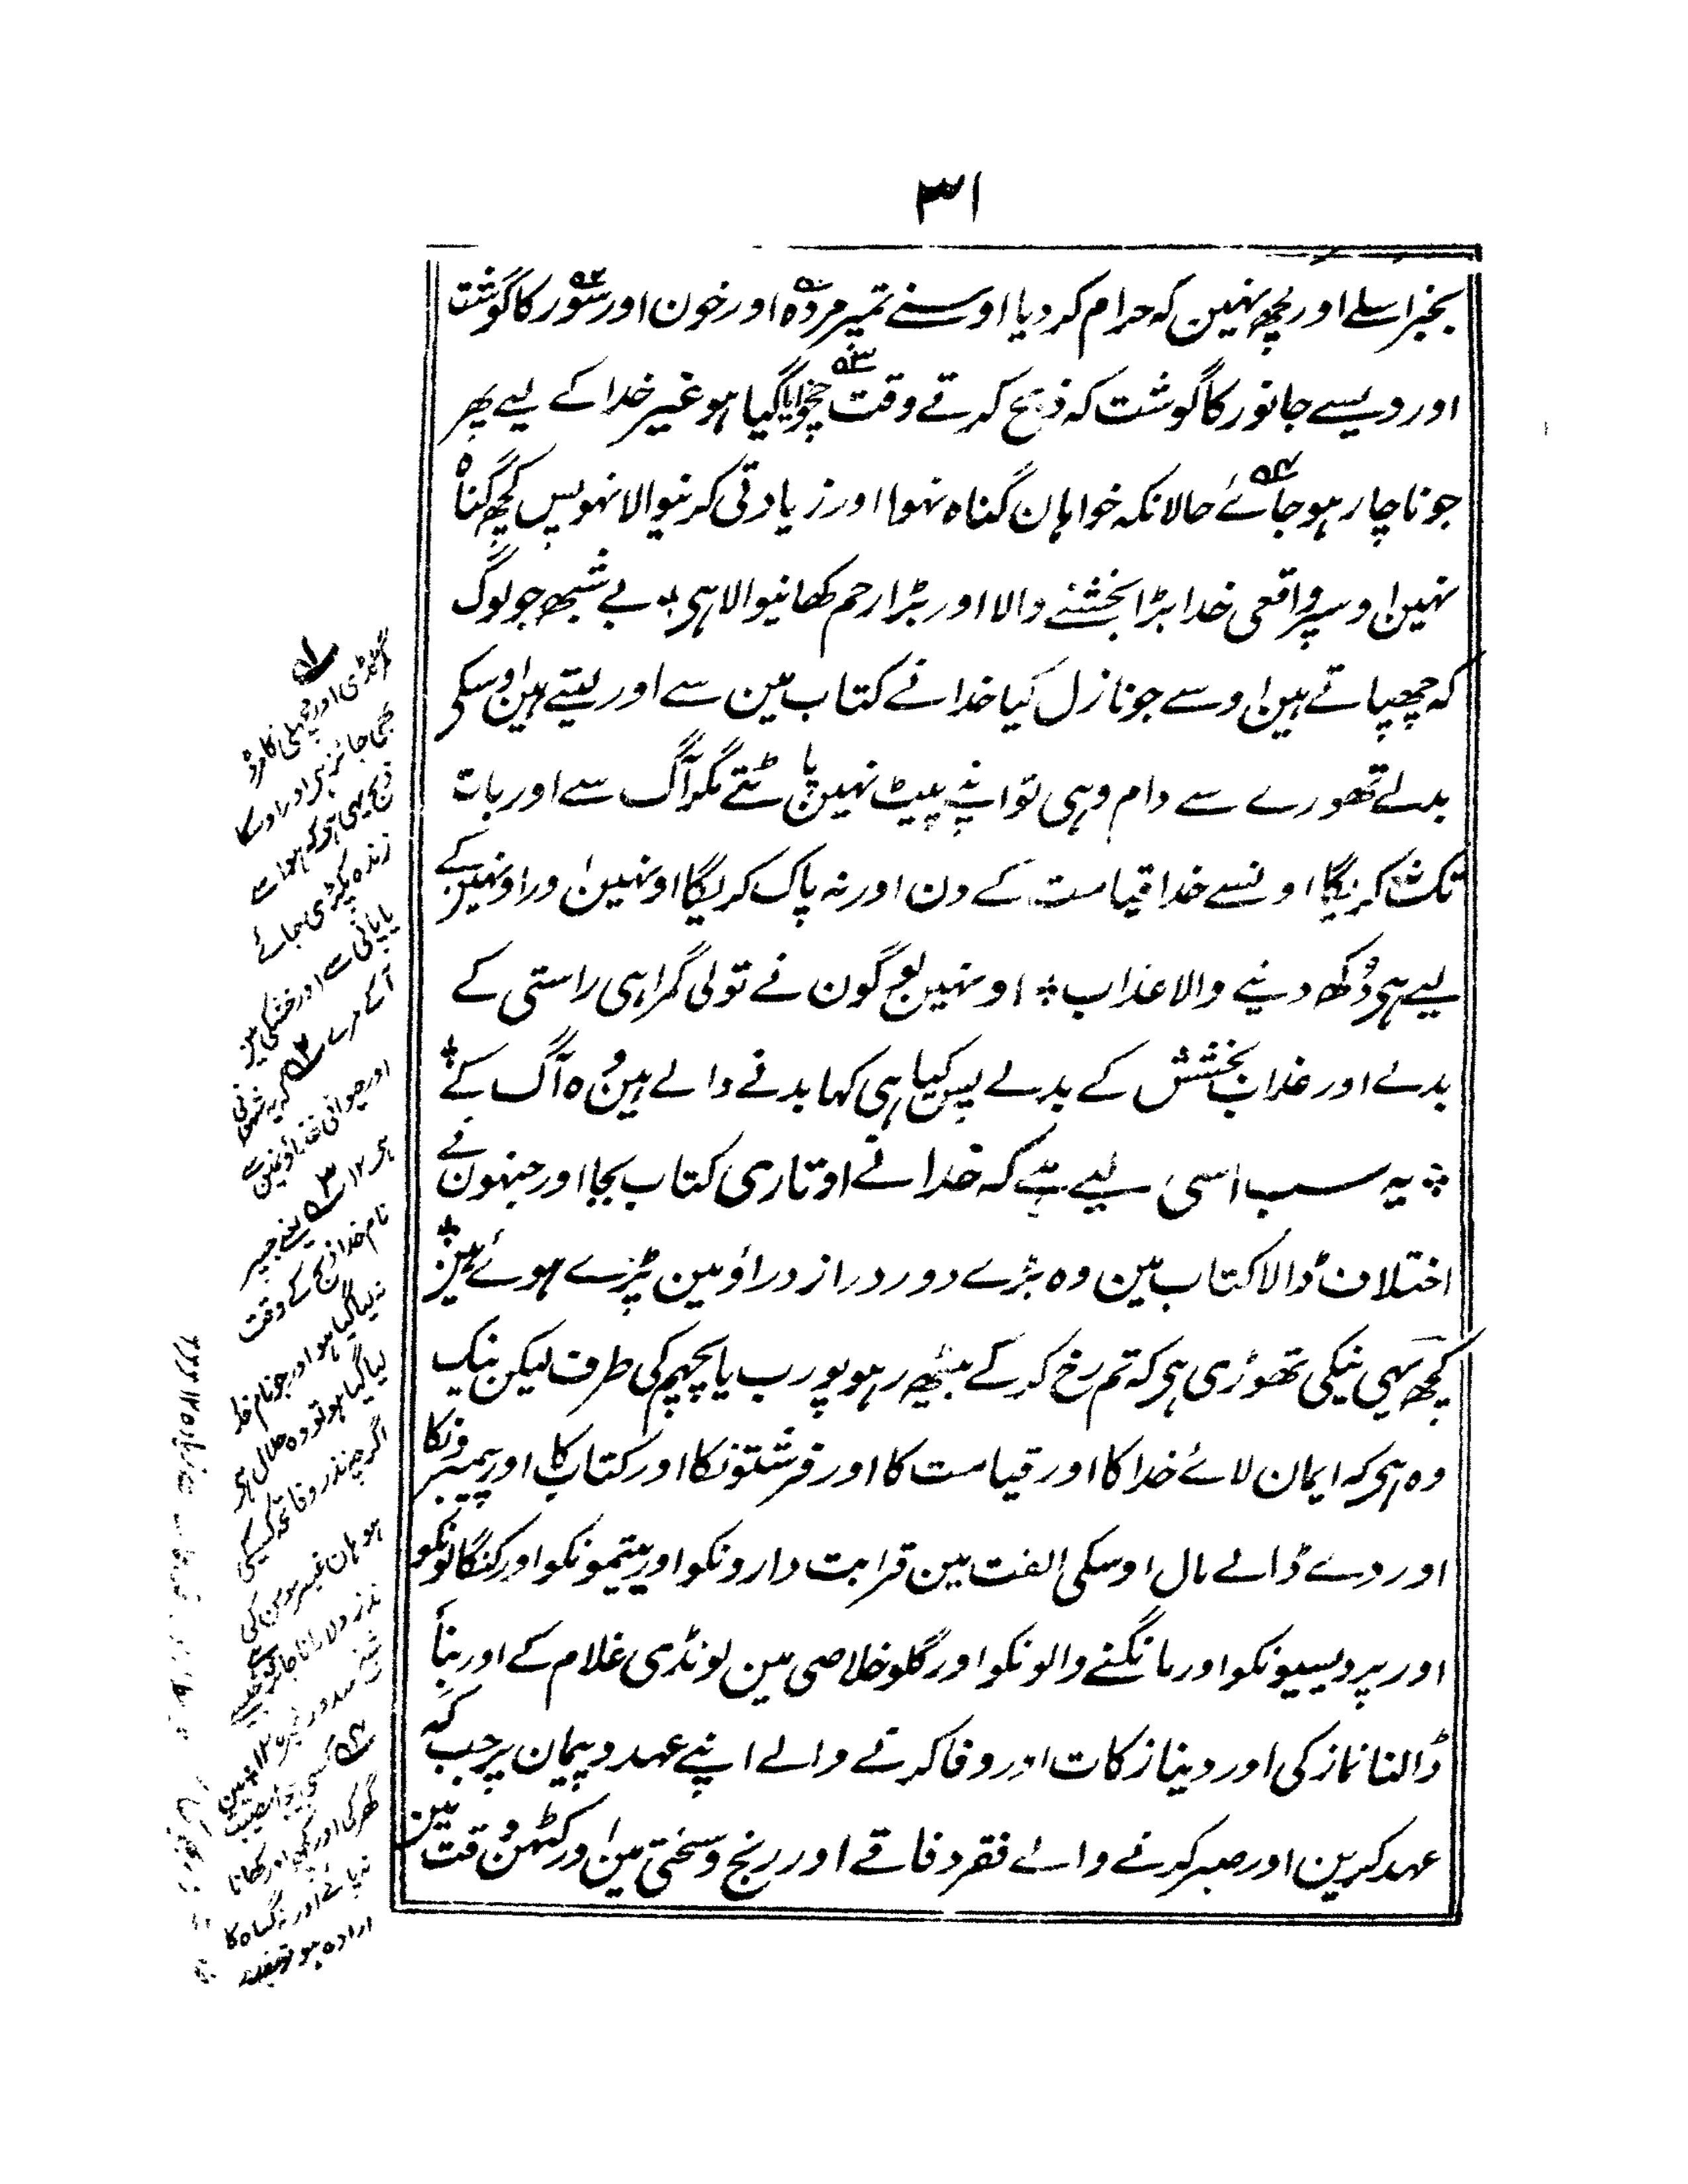 ۳۱
بجز اسکے اور کچھ نہین کہ حرام کر دیا اوسنے تمپر مردہ اور خون اور سُور کا گوشت
اور ویسے جانور کا گوشت کہ ذبح کرتے وقت گیا ہو غیر خدا کے لیے پھر
جو ناچار ہو جائے حالانکہ خواہان گناہ نہو اور زیادتی کرنیوالا نہو پس کچھ گناہ
نہین اوسپر واقعی خدا بڑا بخشنے والا اور بڑا رحم کھانیوالا ہی ؞ بے شبھہ جو لوگ
کہ چھپاتے ہین اوسے جو نازل کیا خدا نے کتاب مین سے اور لیتے ہین اوسکی
بدلے تھورے سے دام وہی تو اپنے پیٹ نہین پاٹتے مگر آگ سے اور بات
تک نہ کریگا اونسے خدا قیامت کے دن اور نہ پاک کریگا اونہین اور اونہین کے
لیے ہی دُکھ دینے والا عذاب ؞ اونہین لوگون نے تو لی گمراہی راستی کے
بدلے اور عذاب بخشش کے بدلے پس کیا ہی کہا بدنے والے ہین وہ آگ کے ؞
؞ یہ سب اسی لیے ہے کہ خدا نے اوتاری کتاب بجا اور جنہون نے
اختلاف ڈالا کتاب مین وہ بڑے دور دراز دراؤ مین پڑے ہوئے ہین ؞
کچھ یہی نیکی تھوڑی ہی کہ تم رخ کر کے بیٹھ رہو پورب یا پچھم کی طرف لیکن نیک
وہ ہی کہ ایمان لائے خدا کا اور قیامت کا اور فرشتونکا اور کتاب کا اور پیمبرونکا
اور دے ڈالے مال اوسکی الفت مین قرابت دارونکو اور یتیمونکو اور کنگالونکو
اور پردیسیونکو اور مانگنے والونکو اور گلو خلاصی مین لونڈی غلام کے اور بنا
ڈالنا نماز کی اور دینا زکات اور وفا کرنے والے اپنے عہد و پیمان پر جب کہ
عہد کرین اور صبر کرنے والے فقر و فاقے اور رنج و سختی مین اور کٹھن وقت مین
ٹڈی اور مچھلی کا مردہ
بھی جائز ہی اور اوسکا
ذبح یہی ہی کہ ہوا سے
زندہ پکڑی جائے
یا پانی سے اور خشکی مین
آ کے مرے
ہی ۱۲ یعنے جسپر
نام خدا ذبح کے وقت
نہ لیا گیا ہو اور جو نام خدا
لیا گیا ہو تو وہ حلال ہی
اگرچہ نذر و فاتحہ کسیکی
ہو ہان غیر مومن کی
گھر کی اور کہین اور کھانا
نہ پائے اور نہ گناہ کا
ارادہ ہو